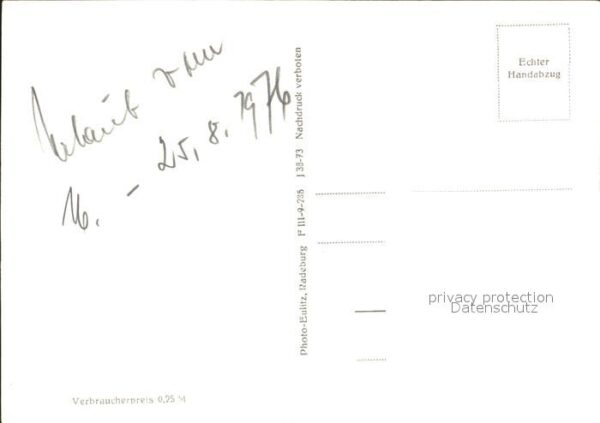 Urlaub vom
16. – 25.8.1976
Photo-Eulitz, Radeburg F III-9-286 J 38-73 Nachdruck verboten
Echter
Handabzug
privacy protection
Datenschutz
Verbraucherpreis 0,25 M